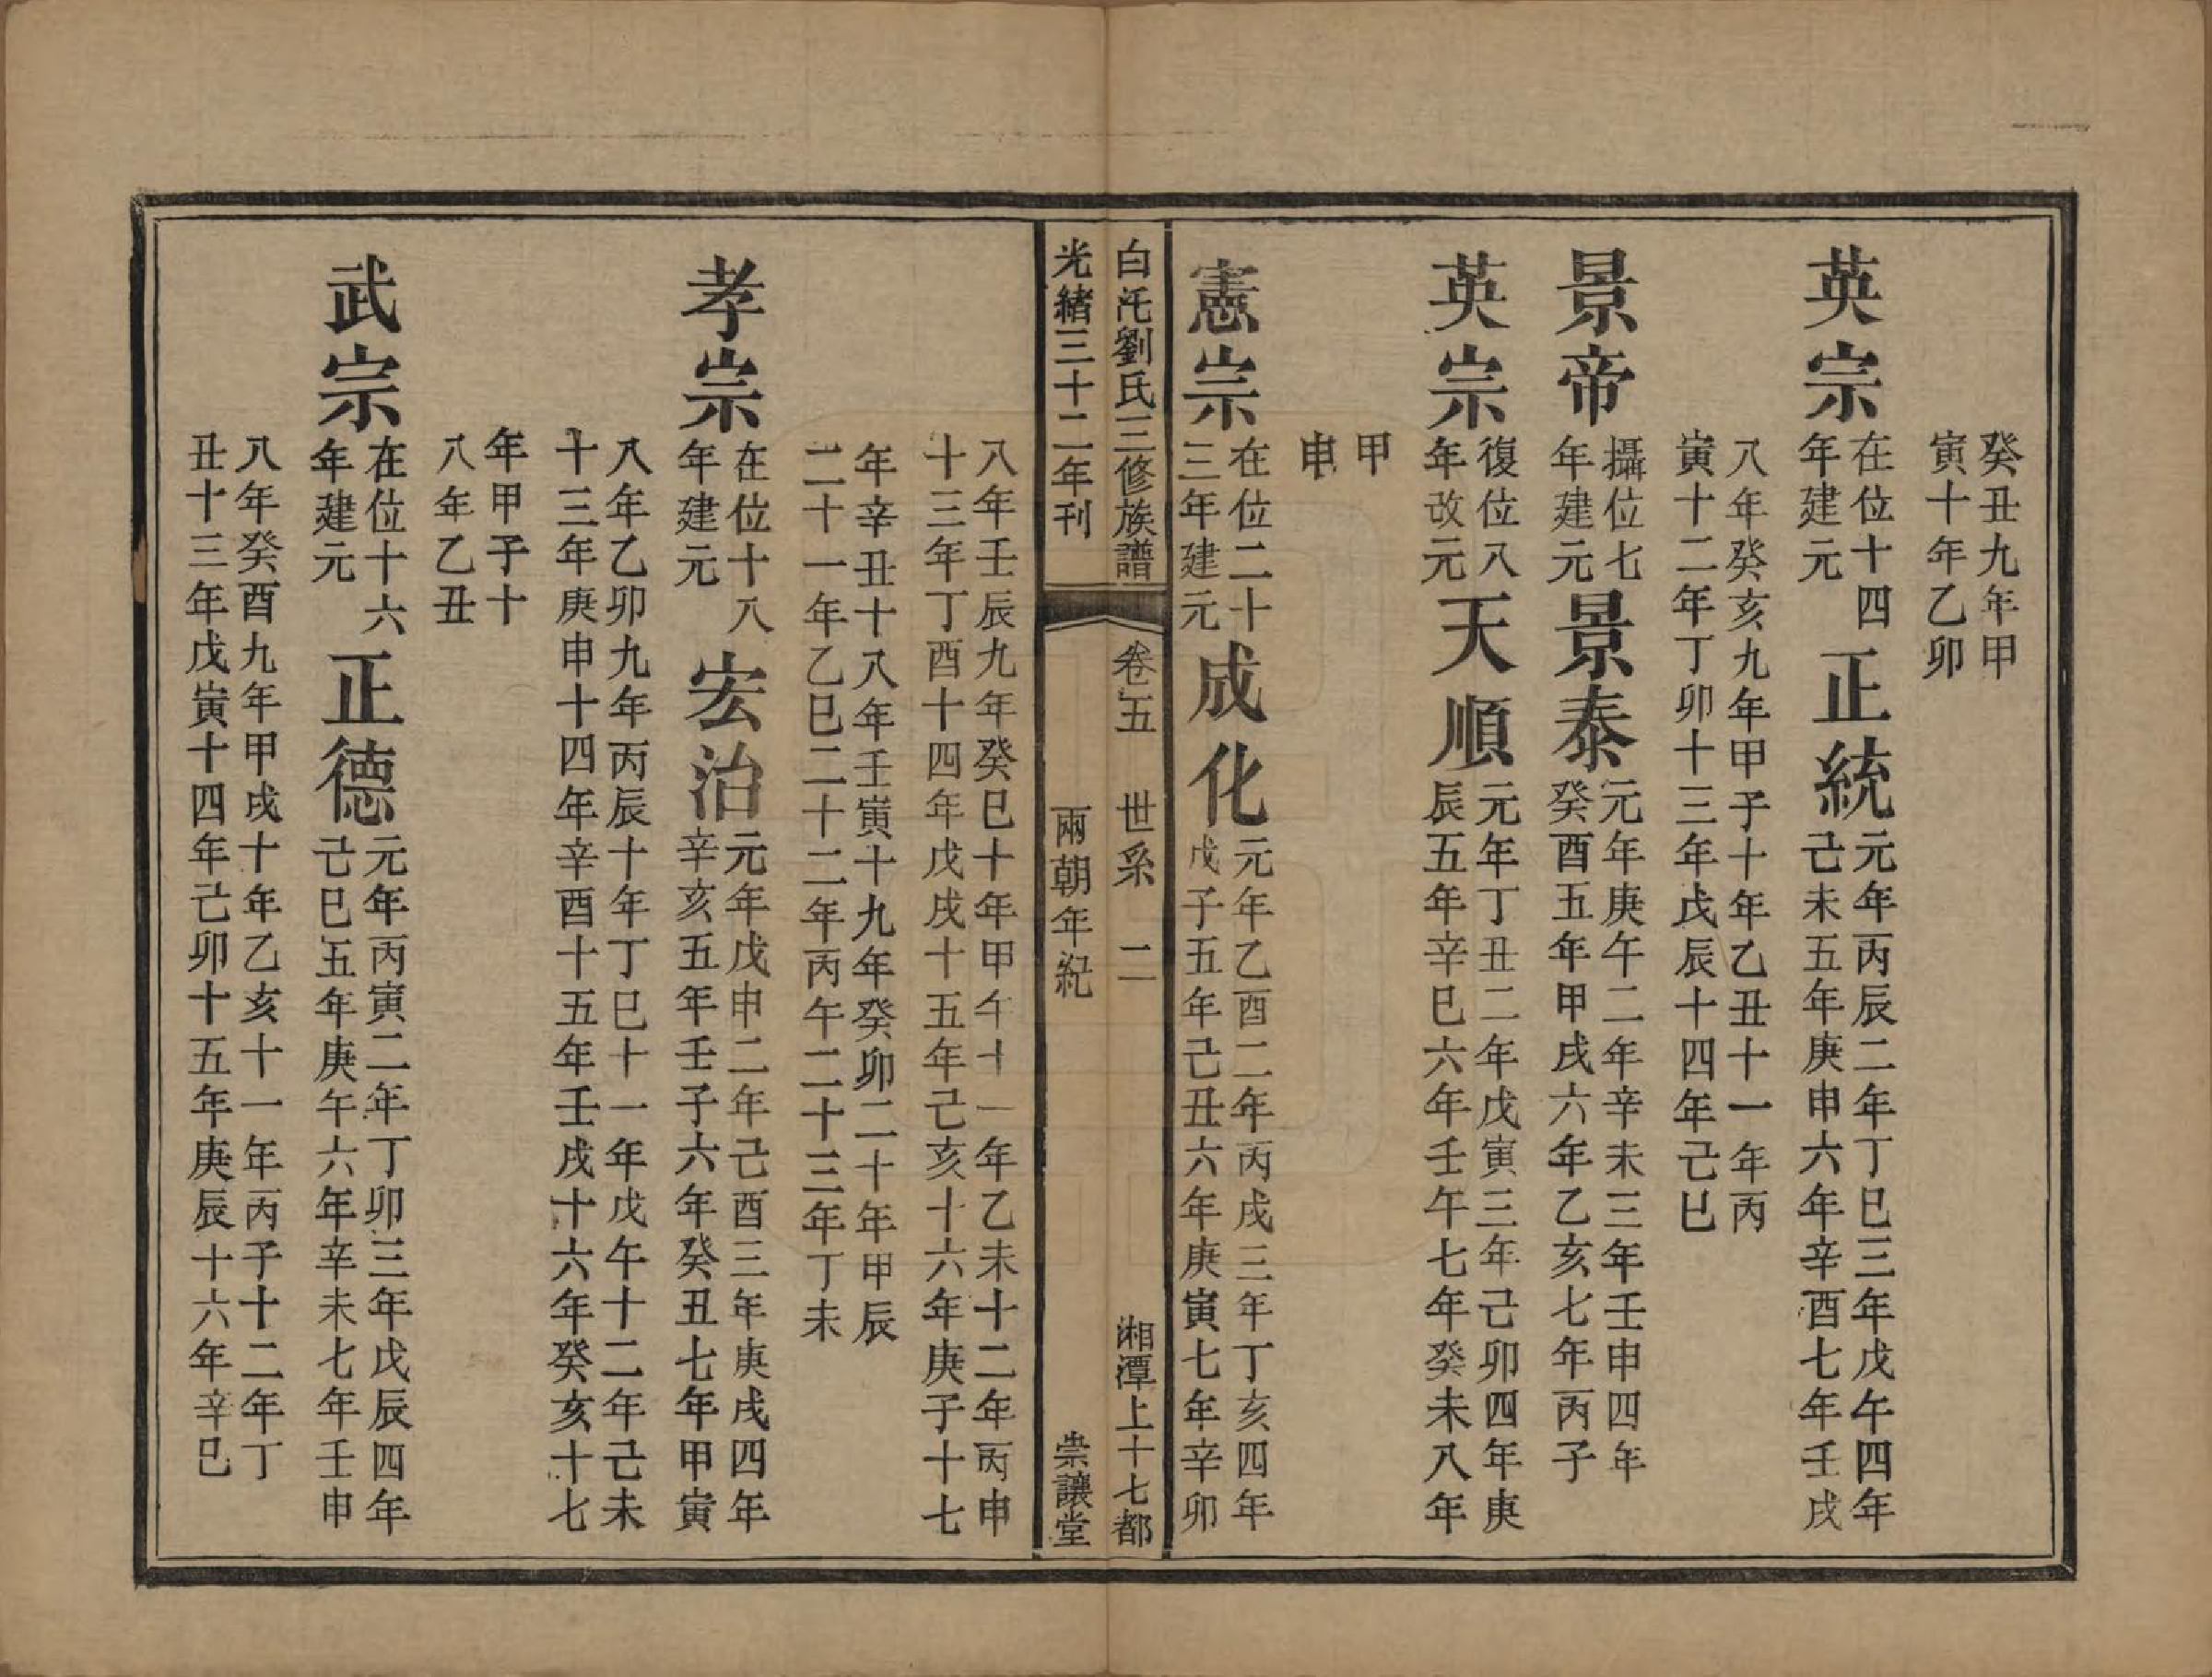 癸丑九年甲
寅十年乙卯
英宗
在位十四
年建元
正統
元年丙辰二年丁巳三年戊午四年
己未五年庚申六年辛酉七年壬戌
八年癸亥九年甲子十年乙丑十一年丙
寅十二年丁卯十三年戊辰十四年己巳
景帝
攝位七
年建元
景泰
元年庚午二年辛未三年壬申四年
癸酉五年甲戌六年乙亥七年丙子
英宗
復位八
年改元
天順
元年丁丑二年戊寅三年己卯四年庚
辰五年辛巳六年壬午七年癸未八年
甲
申
憲宗
在位二十
三年建元
成化
元年乙酉二年丙戌三年丁亥四年
戊子五年己丑六年庚寅七年辛卯
白汑劉氏三修族譜 卷五 世系 二 湘潭上十七都
光緒三十二年刊 兩朝年紀 崇讓堂
八年壬辰九年癸巳十年甲午十一年乙未十二年丙申
十三年丁酉十四年戊戌十五年己亥十六年庚子十七
年辛丑十八年壬寅十九年癸卯二十年甲辰
二十一年乙巳二十二年丙午二十三年丁未
孝宗
在位十八
年建元
宏治
元年戊申二年己酉三年庚戌四年
辛亥五年壬子六年癸丑七年甲寅
八年乙卯九年丙辰十年丁巳十一年戊午十二年己未
十三年庚申十四年辛酉十五年壬戌十六年癸亥十七
年甲子十
八年乙丑
武宗
在位十六
年建元
正德
元年丙寅二年丁卯三年戊辰四年
己巳五年庚午六年辛未七年壬申
八年癸酉九年甲戌十年乙亥十一年丙子十二年丁
丑十三年戊寅十四年己卯十五年庚辰十六年辛巳